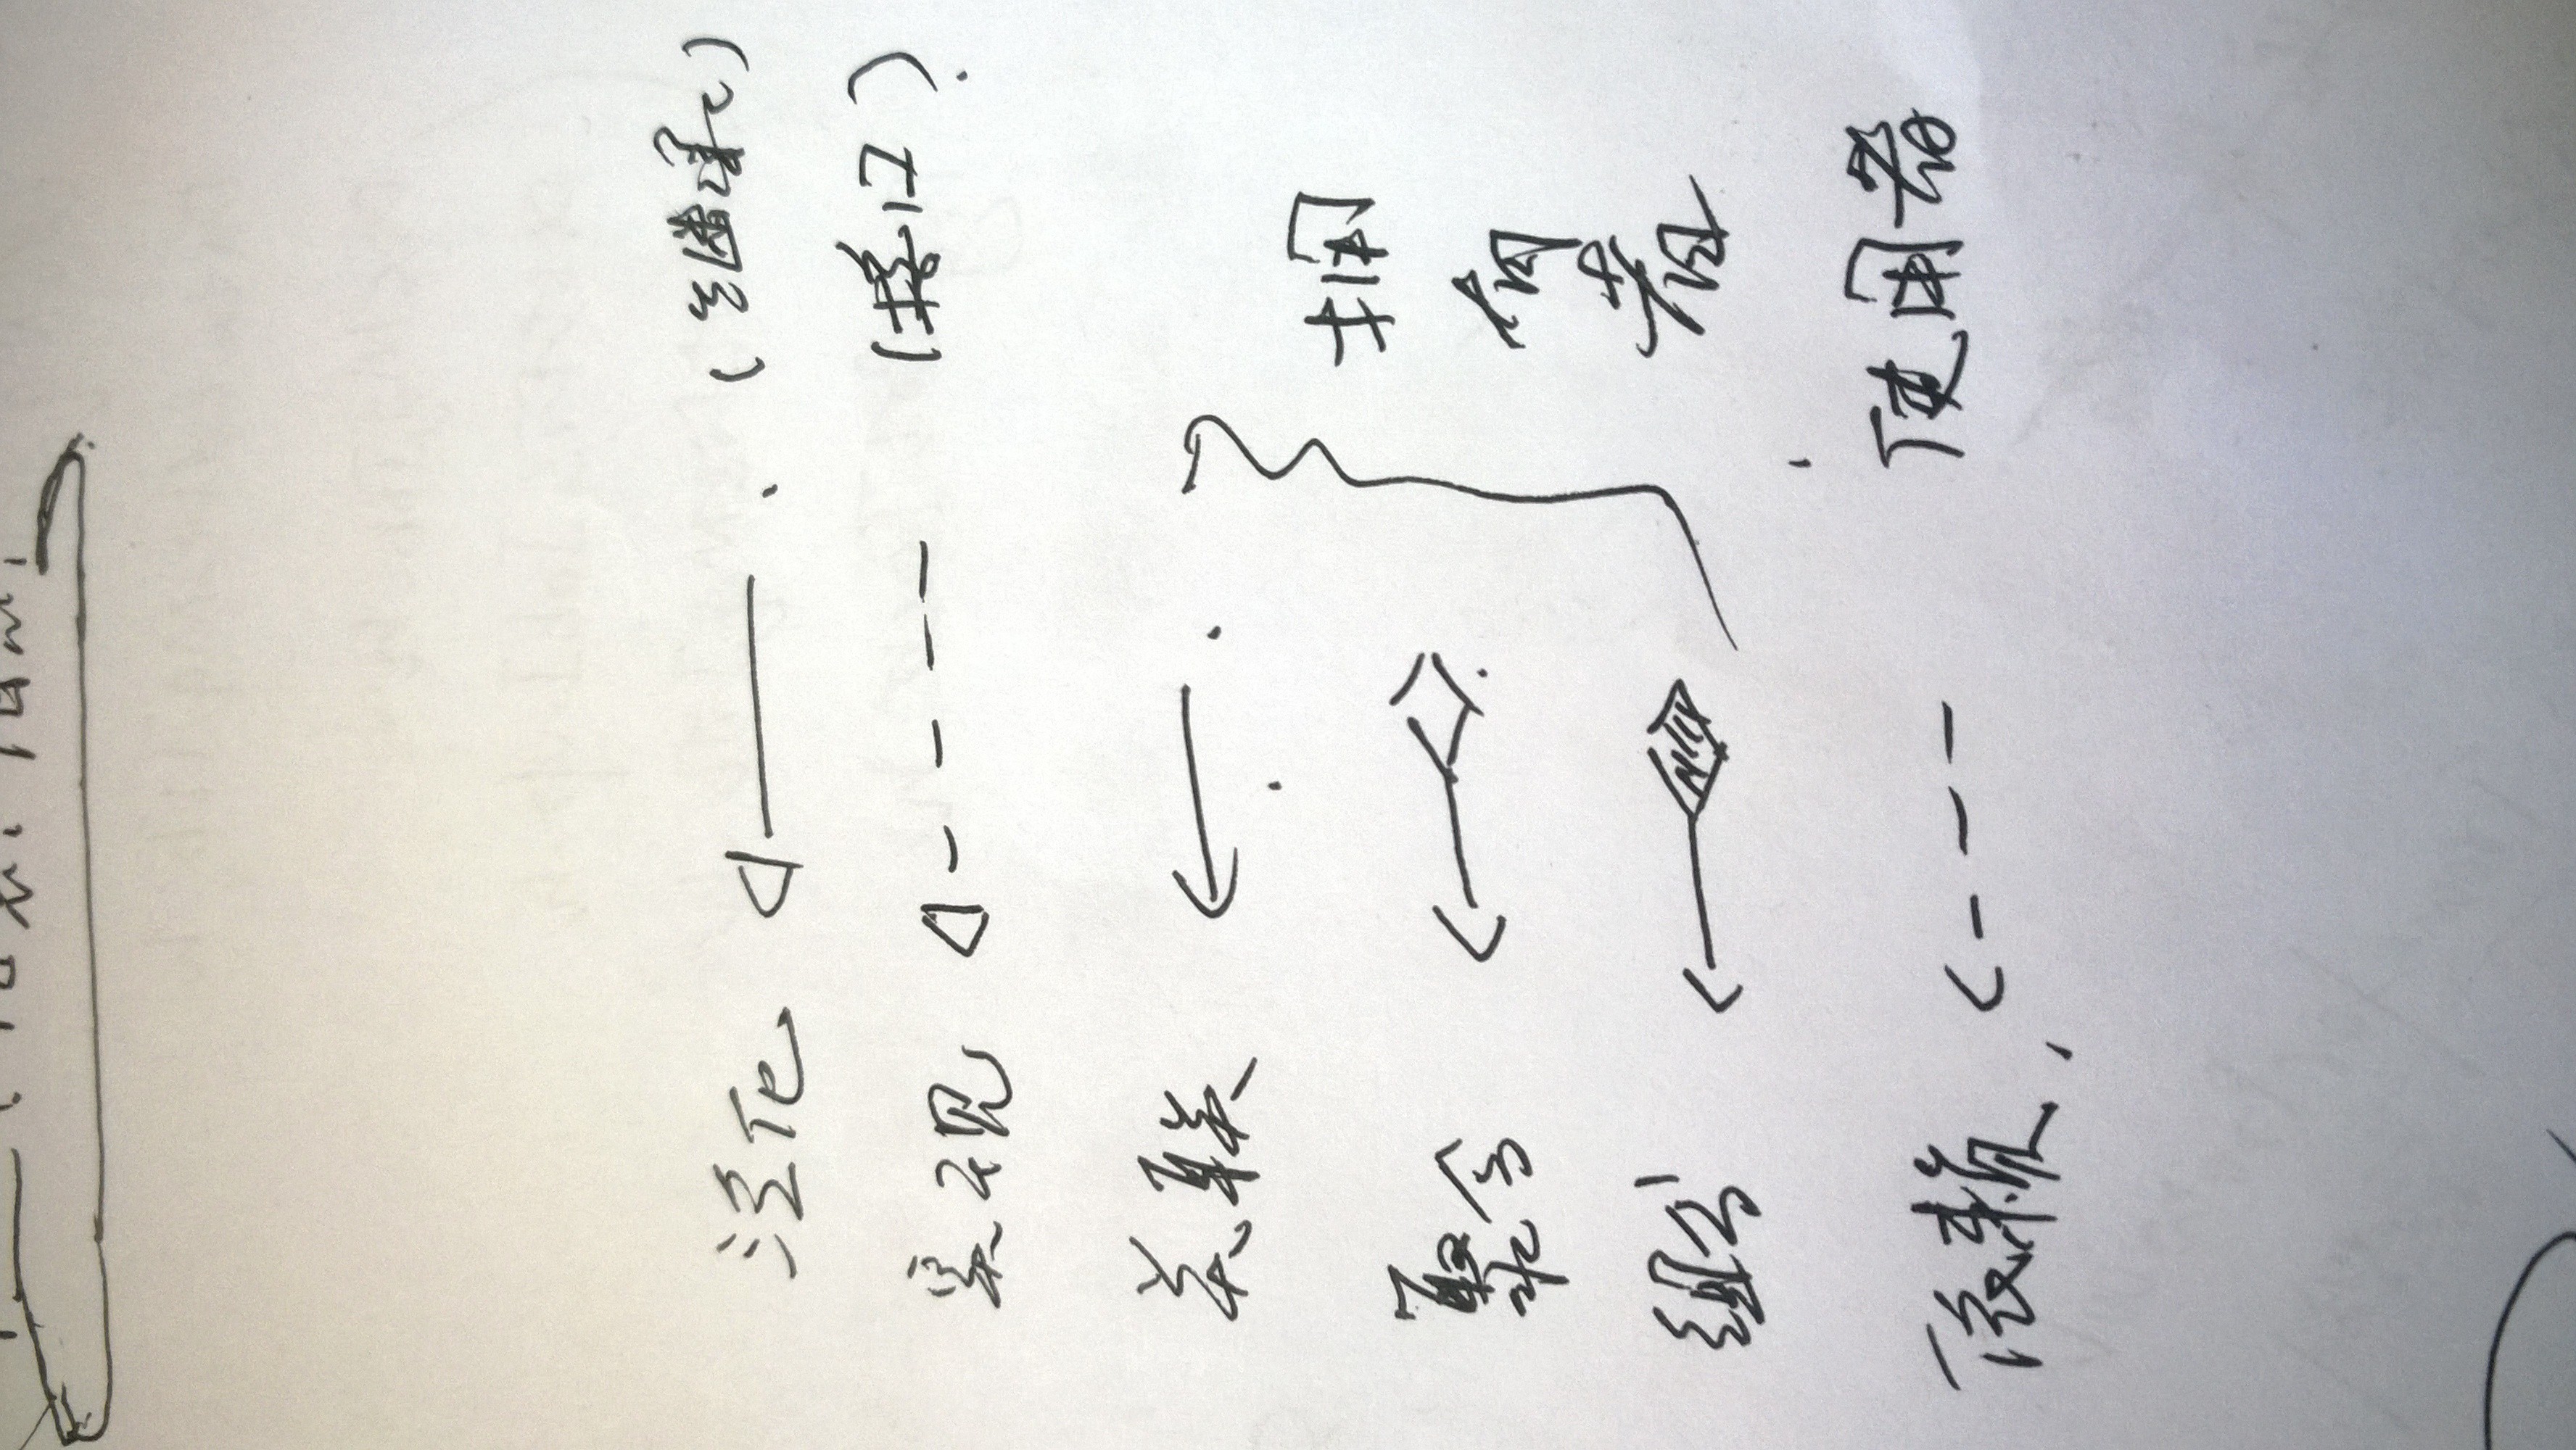 泛化 (继承)
实现 (接口)
关联
聚合
组合
拥有者
依赖 使用者